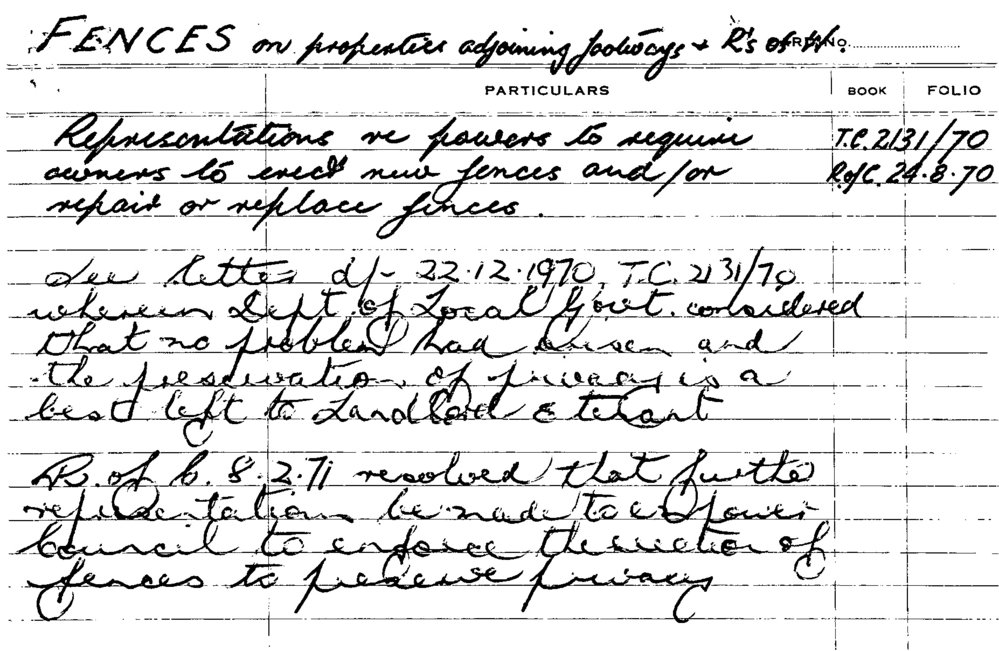 FENCES on properties adjoining footways & R's of W.
No.
PARTICULARS BOOK FOLIO
Representations re powers to require T.C. 2131/70
owners to erect new fences and/or R.of C. 24.8.70
repair or replace fences.
See letter d/- 22.12.1970, T.C. 2131/70
wherein Dept. of Local Govt. considered
that no problem had arisen and
the preservation of privacy is a
best left to Landlord & tenant
R. of C. 8.2.71 resolved that further
representations be made to empower
Council to enforce the erection of
fences to preserve privacy